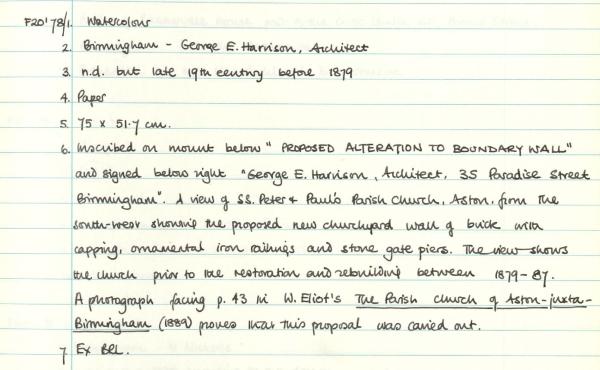 F20'78/1. Watercolour
2. Birmingham - George E. Harrison, Architect
3. n.d. but late 19th century before 1879
4. Paper
5. 75 x 51.7 cm.
6. Inscribed on mount below "PROPOSED ALTERATION TO BOUNDARY WALL"
and signed below right "George E. Harrison, Architect, 35 Paradise Street
Birmingham". A view of SS. Peter & Paul's Parish Church, Aston, from the
south-west showing the proposed new churchyard wall of brick with
capping, ornamental iron railings and stone gate piers. The view shows
the church prior to the restoration and rebuilding between 1879-87.
A photograph facing p. 43 in W. Eliot's The Parish Church of Aston-juxta-
Birmingham (1889) proves that this proposal was carried out.
7 Ex BRL.